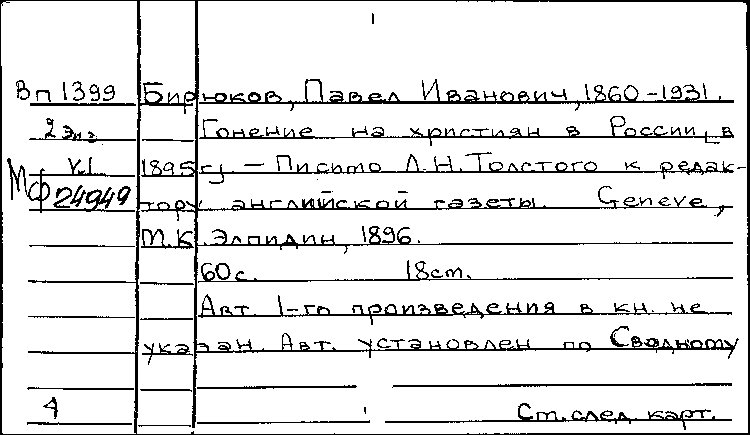 Вп 1399 Бирюков, Павел Иванович, 1860-1931.
2 экз Гонение на христиан в России [в
V.1 1895 г.] – Письмо Л.Н. Толстого к редак-
МФ 24949 тору английской газеты. Geneve,
М.К. Элпидин, 1896.
60 с. 18 см.
Авт. 1-го произведения в кн. не
указан. Авт. установлен по Сводному
4 См. след. карт.